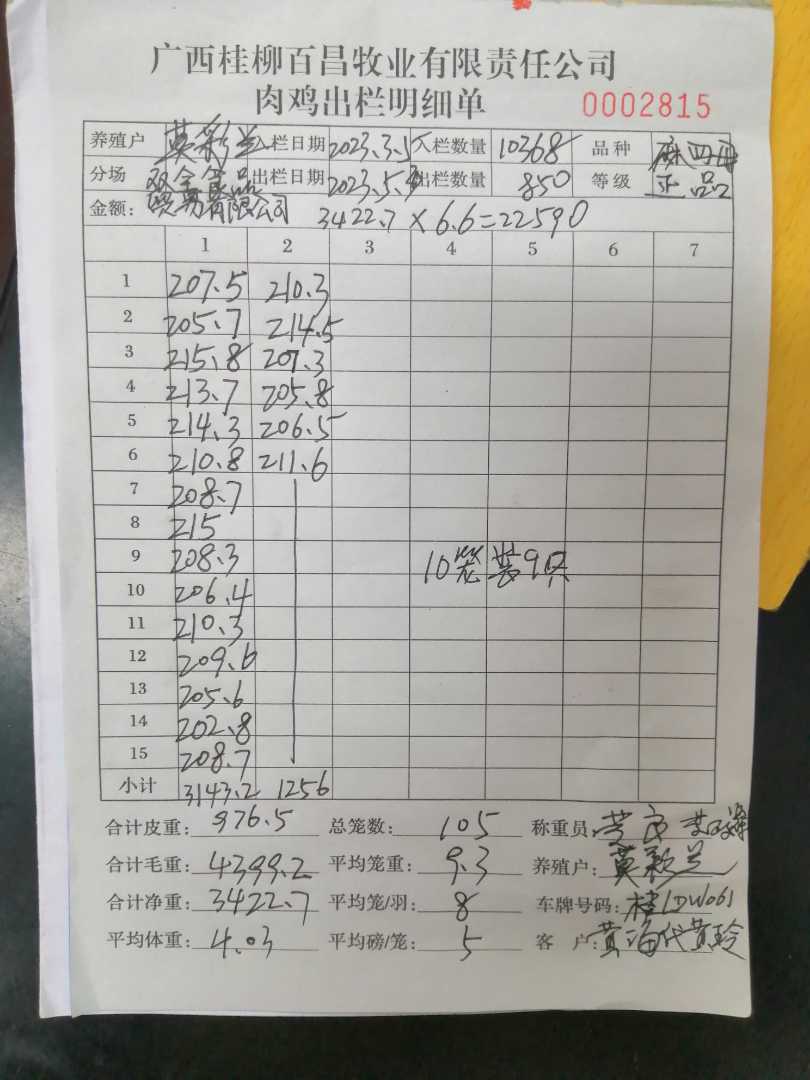 广西桂柳百昌牧业有限责任公司
肉鸡出栏明细单 0002815
养殖户 莫彩兰 入栏日期 2023.3.5 入栏数量 10368 品种 麻四母
分场 双全食品 出栏日期 2023.5.3 出栏数量 850 等级 正品
贸易有限公司
金额： 3422.7 × 6.6=22590
1 2 3 4 5 6 7
1 207.5 210.3
2 205.7 214.5
3 215.8 207.3
4 213.7 205.8
5 214.3 206.5
6 210.8 211.6
7 208.7
8 215
9 208.3 10笼装9只
10 206.4
11 210.3
12 209.6
13 205.6
14 202.8
15 208.7
小计 3143.2 1256
合计皮重： 976.5 总笼数： 105 称重员：
合计毛重： 4399.2 平均笼重： 9.3 养殖户： 莫彩兰
合计净重： 3422.7 平均笼/羽： 8 车牌号码： 桂1DW061
平均体重： 4.03 平均磅/笼： 5 客户： 黄海代黄玲